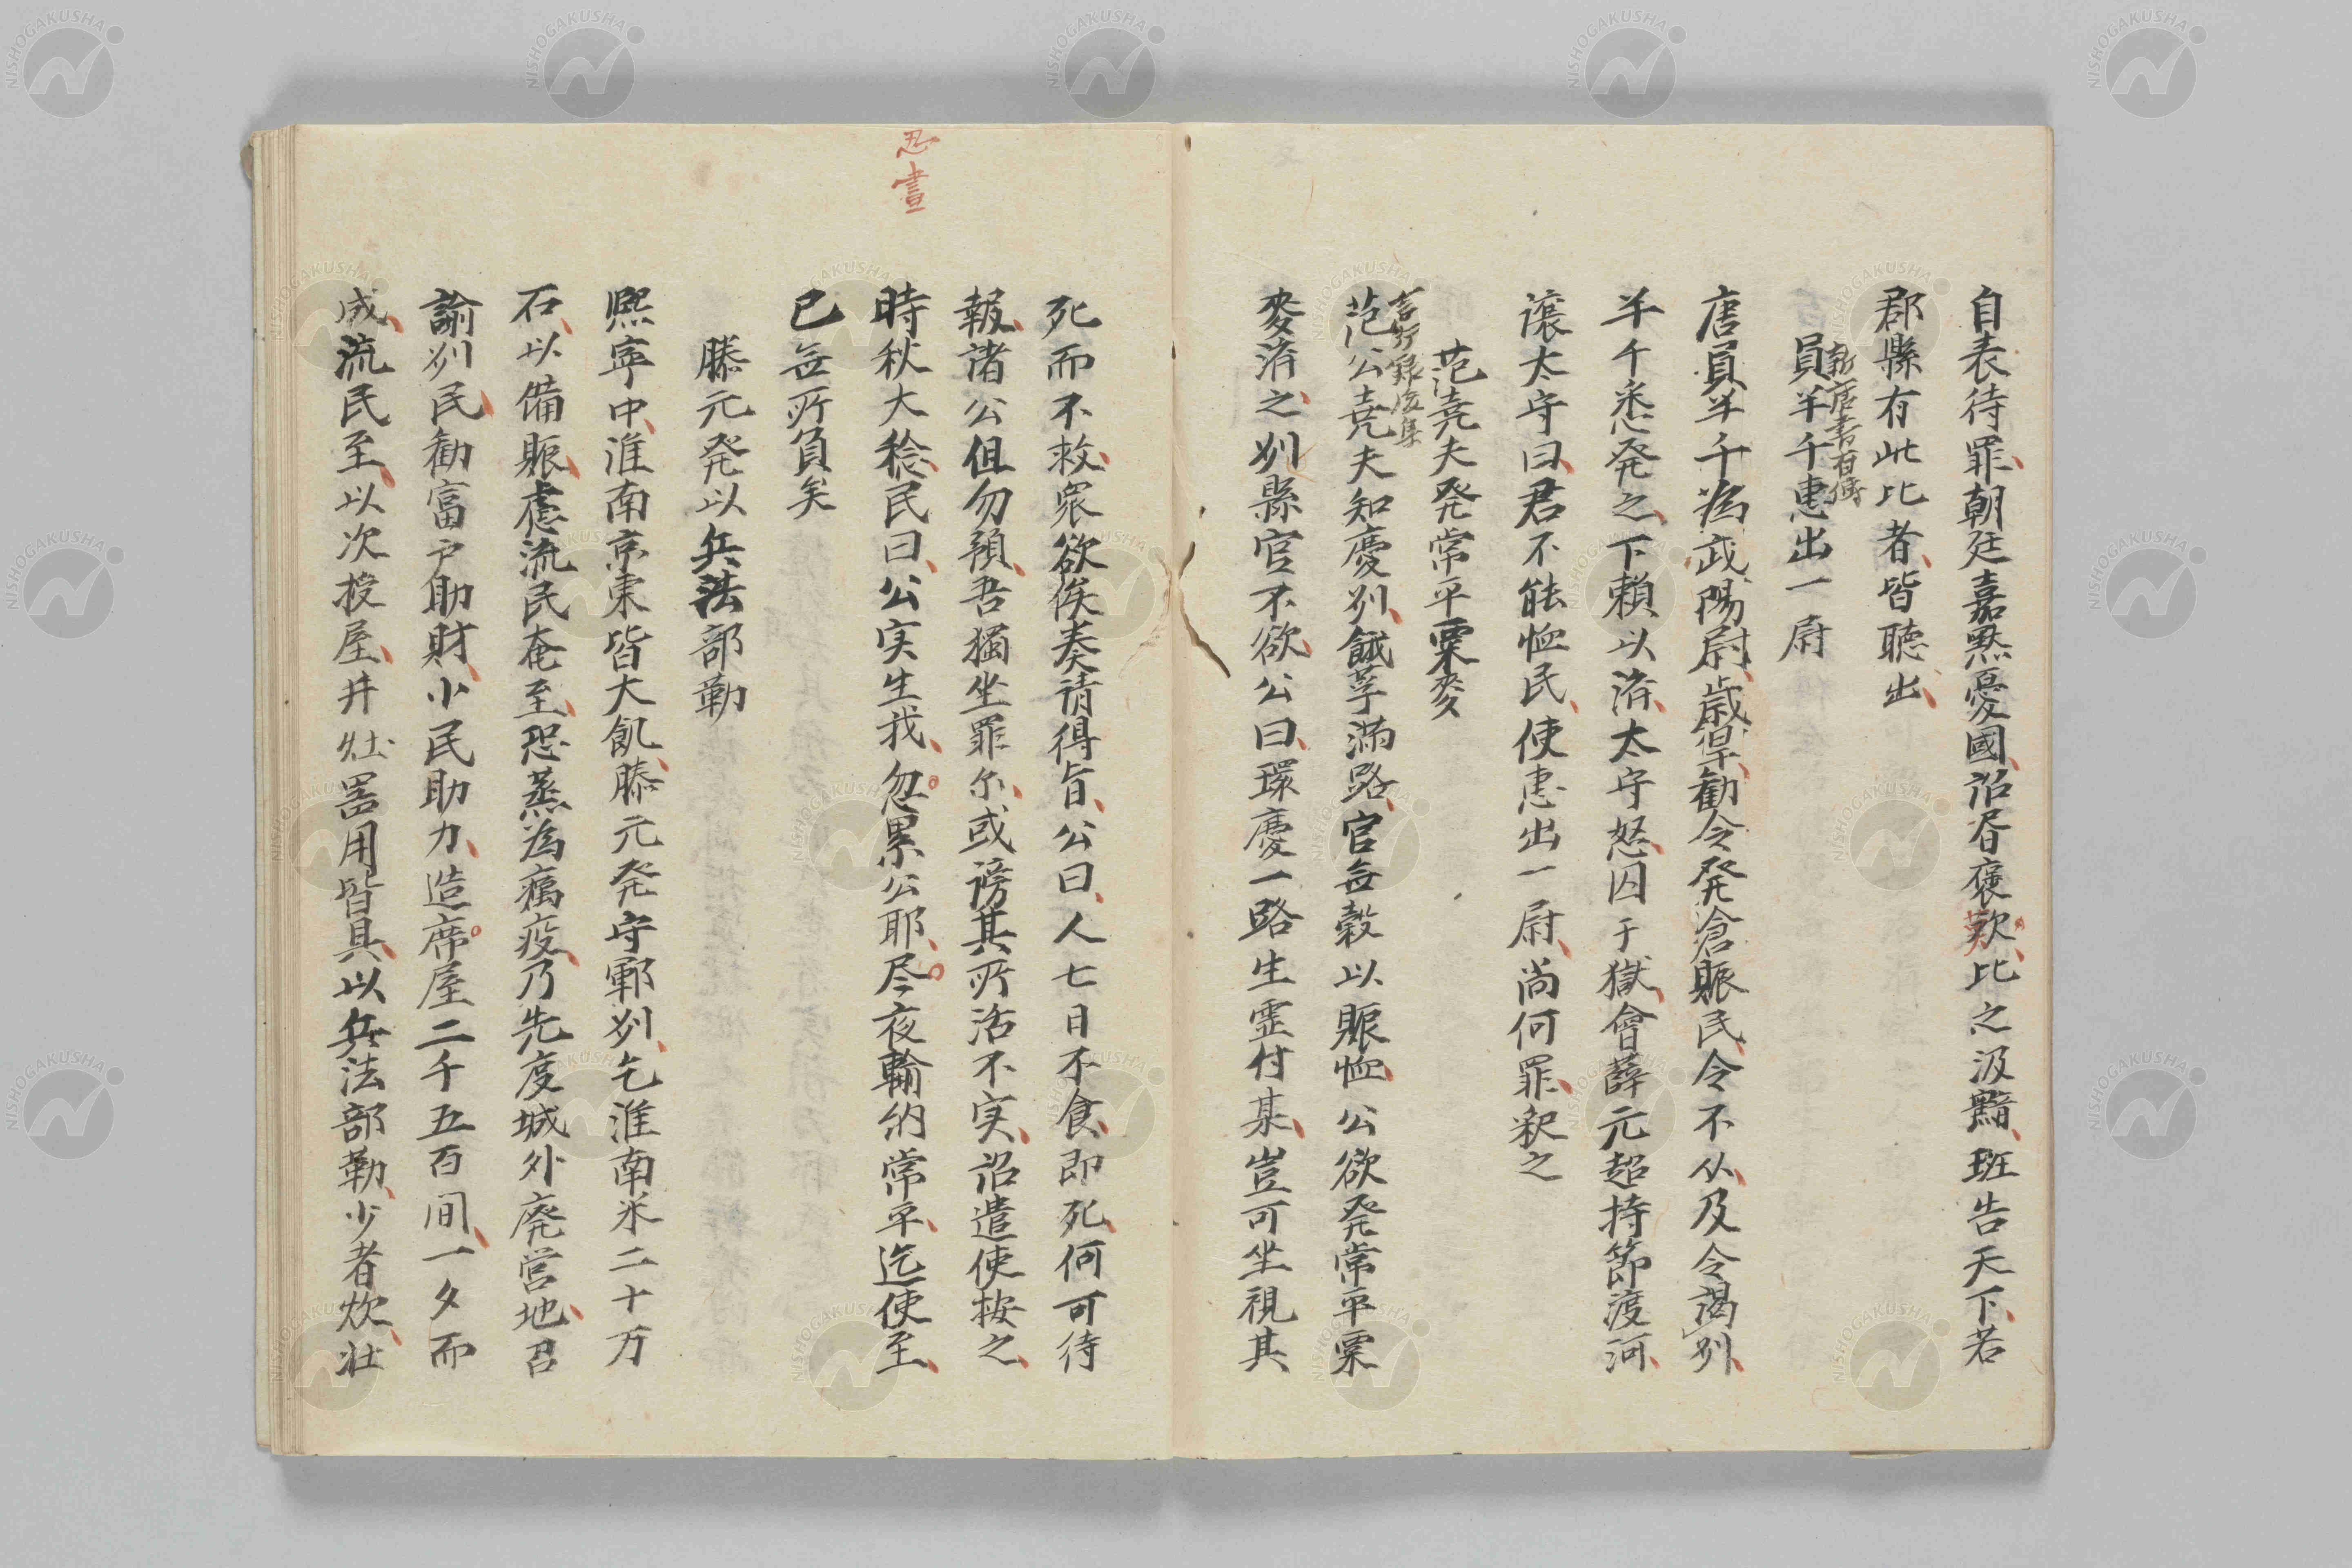 自表待罪朝廷嘉黙憂國詔眷褒歎比之汲黯班告天下若
郡縣有此比者皆聴出
員半千恵出一尉
新唐書有傳
唐員半千為武陽尉歳旱勧令発倉賑民令不从及令謁州
半千悉発之下頼以済太守怒囚于獄會薛元超持節渡河
譲太守曰君不能恤民使恵出一尉尚何罪釈之
范堯夫発常平粟麥
言行録
范公堯夫知慶州餓莩滿路官無穀以賑恤公欲発常平粟
麥済之州縣官不欲公曰環慶一路生霊付某豈可坐視其
死而不救衆欲俟奏請得旨公曰人七日不食即死何可待
報諸公但勿預吾獨坐罪尓或謗其所活不実詔遣使按之
時秋大稔民曰公実生我忽累公耶尽夜輸納常平迄使至
已無所負矣
忍晝
滕元発以兵法部勒
熙寧中淮南京東皆大飢滕元発守鄆州乞淮南米二十万
石以備賑慮流民奄至恐蒸為癘疫乃先度城外廃営地召
諭州民勧富戸助財小民助力造席屋二千五百间一夕而
成流民至以次授屋井灶器用皆具以兵法部勒少者炊壮
NISHOGAKUSHA